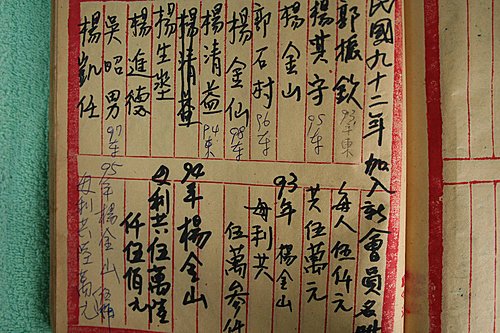 民國九十二年加入新會員名
郭振欽 93年東
楊其守 95年
楊金山
郭石村 96年
楊金仙 98年
楊清益 94東
楊清益
楊生
楊進德
吳昭男 97年
楊凱任
每人伍仟元
共伍萬元
93年楊金山
母利共
伍萬參仟
94年楊金山
母利共伍萬陸
仟伍佰元
95年楊金山
母利共陸萬元